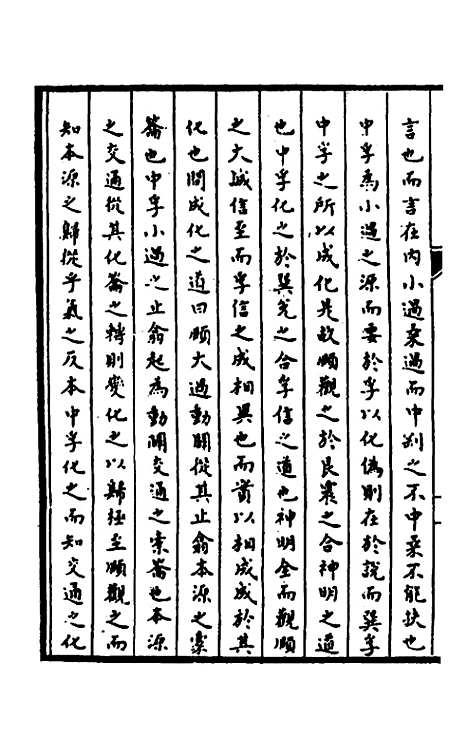 言也而言在内小過柔過而中剝之不中柔不能扶也
中孚為小過之源而要於孚以化偽則在於說而巽孚
中孚之所以成化是故頤觀之於艮震之合神明之道
也中孚化之於巽兌之合孚信之道也神明全而觀順
之大誠信至而孚信之成相異也而實以相成成於其
化也問成化之道曰頤大過動關從其止翕本源之橐
籥也中孚小過之止翕起為動關交通之橐籥也本源
之交通從其化籥之轉則變化之以歸極至頤觀之而
知本源之歸從乎氣之反本中孚化之而知交通之化